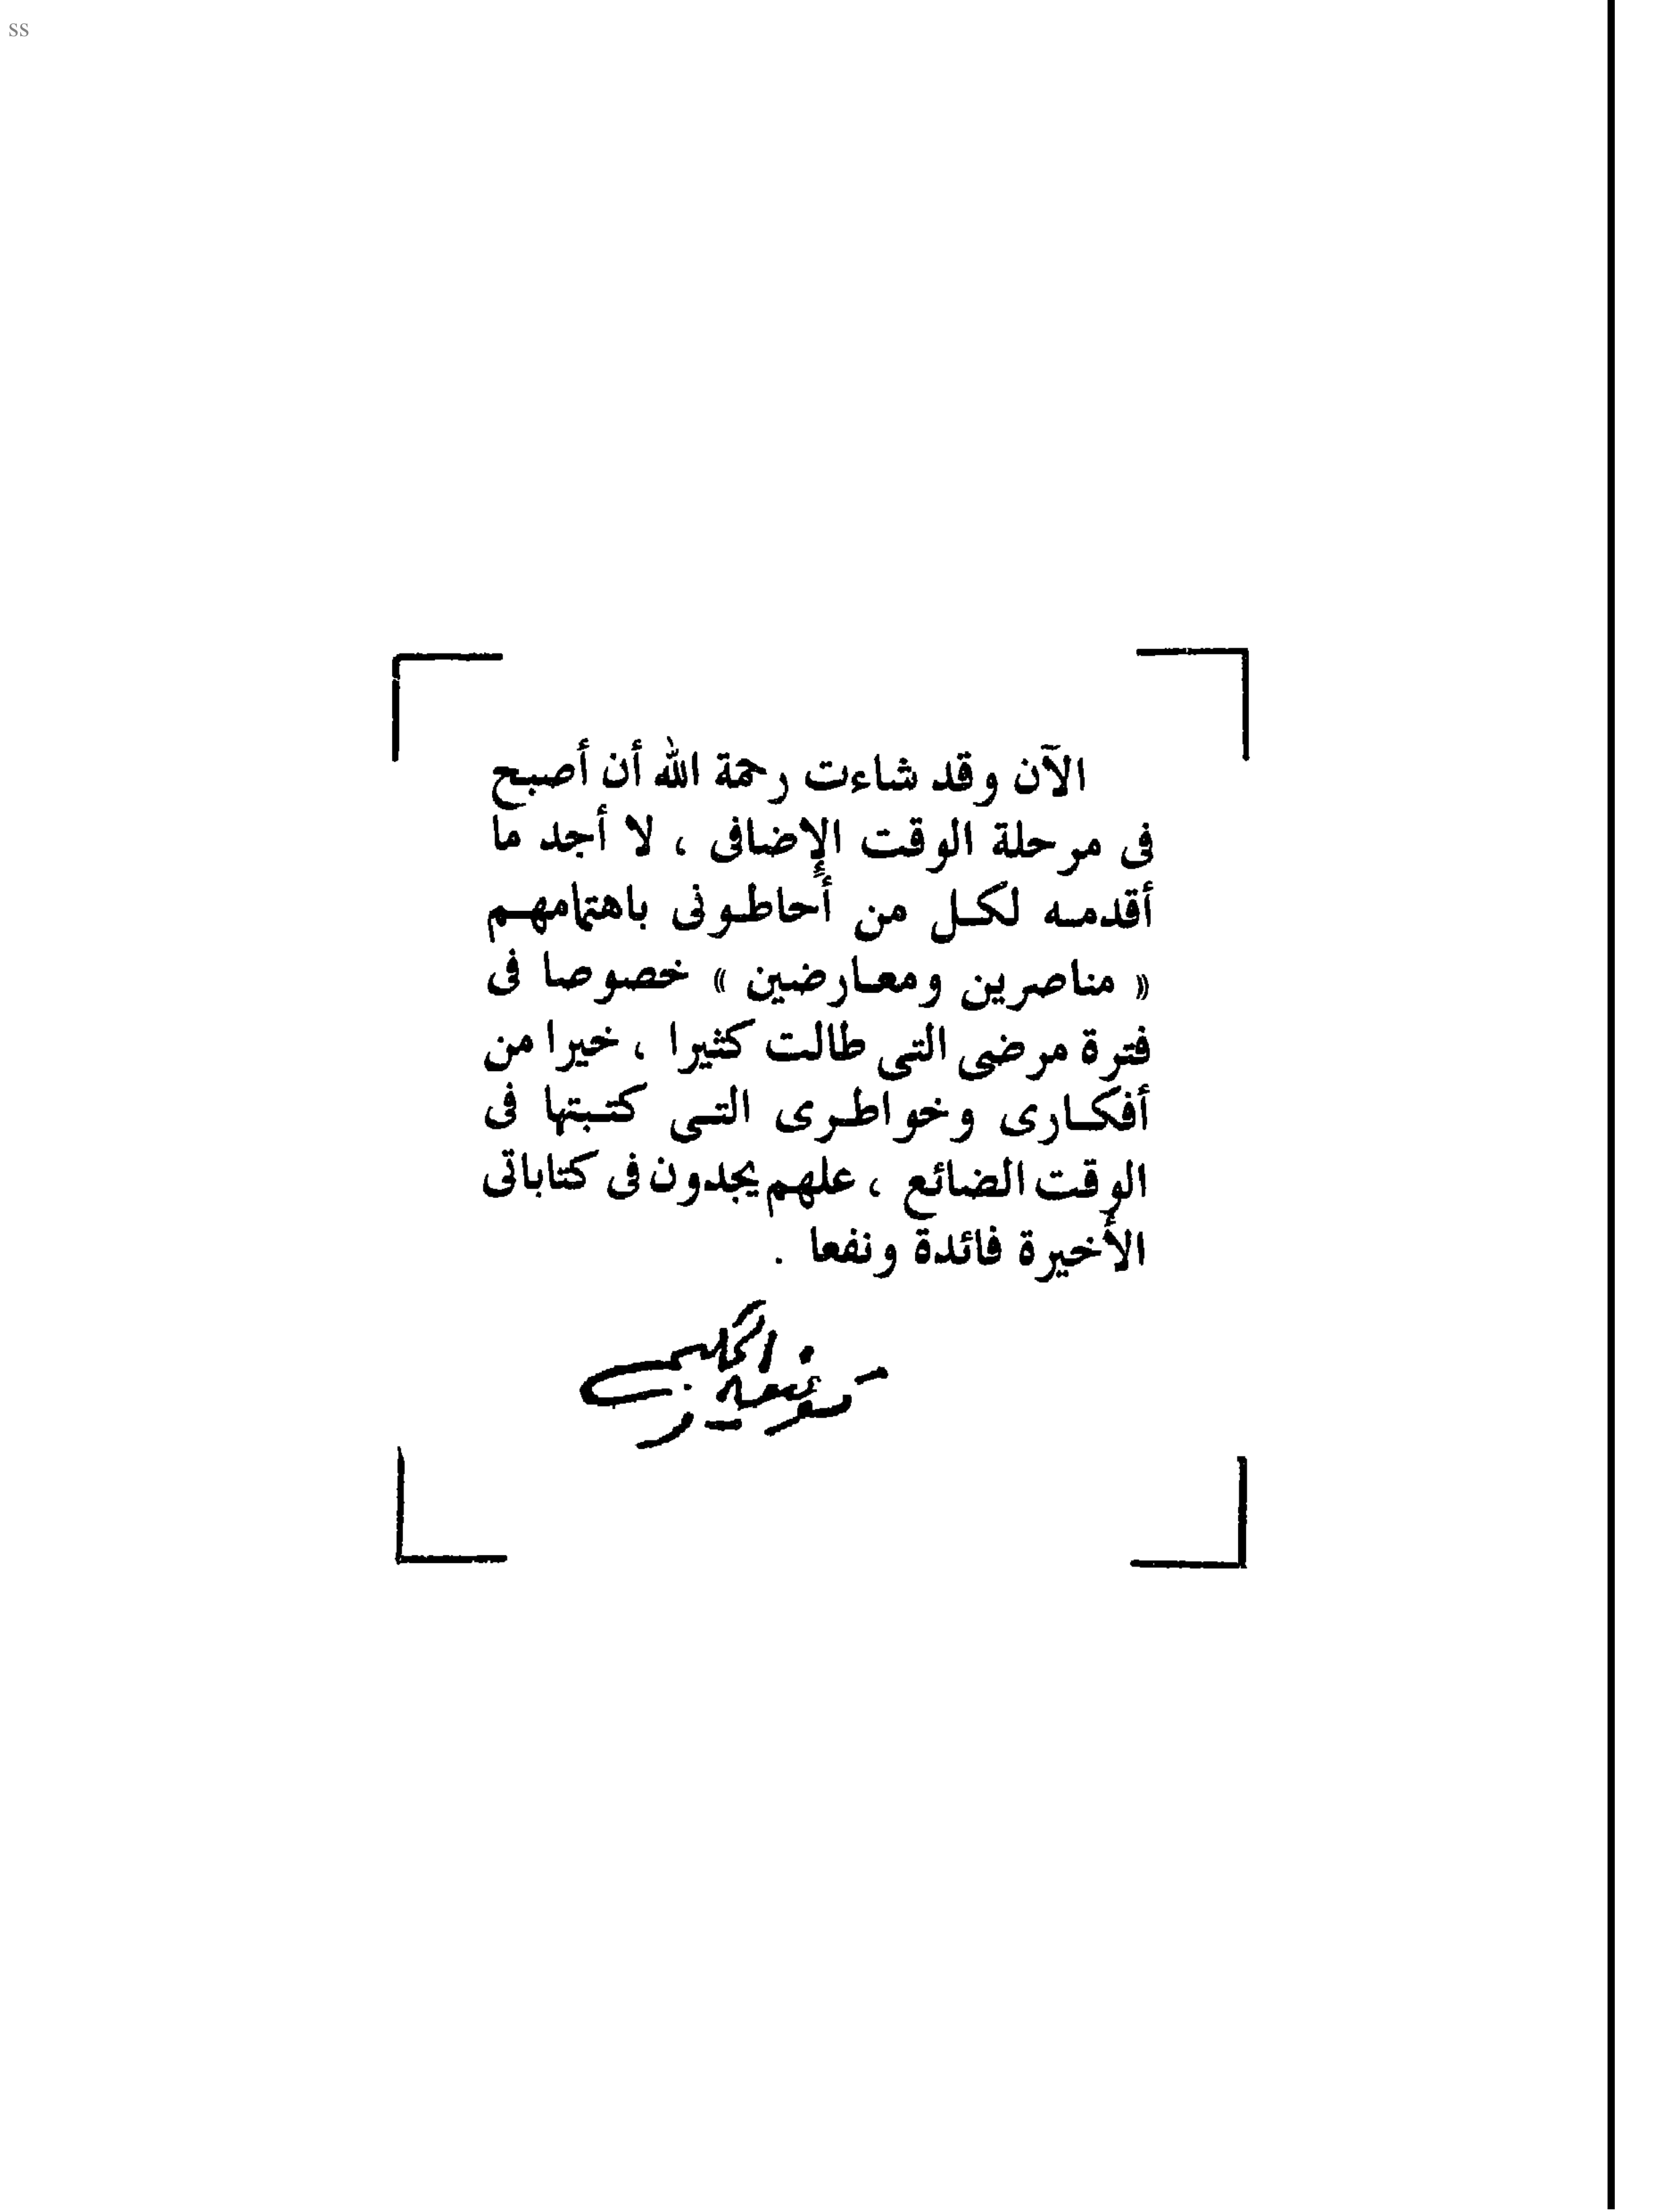 ss
الآن وقد شاءت رحمة الله أن أصبح
فى مرحلة الوقت الإضافى ، لا أجد ما
أقدمه لكل من أحاطونى باهتمامهم
« مناصرين ومعارضين » خصوصا فى
فترة مرضى التى طالت كثيرا ، خيرا من
أفكارى وخواطرى التى كتبتها فى
الوقت الضائع ، علهم يجدون فى كتاباتى
الأخيرة فائدة ونفعا .
توفيق الحكيم